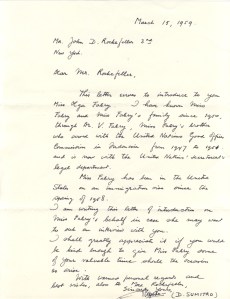 March 15, 1959
Mr. John D. Rockefeller 3rd
New York.
Dear Mr. Rockefeller,
This letter serves to introduce to you
Miss Olga Fabry. I have known Miss
Fabry and Miss Fabry's family since 1950,
through Dr. V. Fabry, Miss Fabry's brother
who served with the United Nations Good Offices
Commission in Indonesia from 1947 to 1950
and is now with the United Nations' Secretariat's
legal department.
Miss Fabry has been in the United
States on an immigration visa since the
spring of 1958.
I am writing this letter of introduction on
Miss Fabry's behalf in case she may want
to ask an interview with you.
I shall greatly appreciate it if you would
be kind enough to give Miss Fabry some
of your valuable time should the occasion
so arise.
With warmest personal regards and
best wishes, also to Mrs. Rockefeller,
Sincerely yours
(D. SUMITRO)